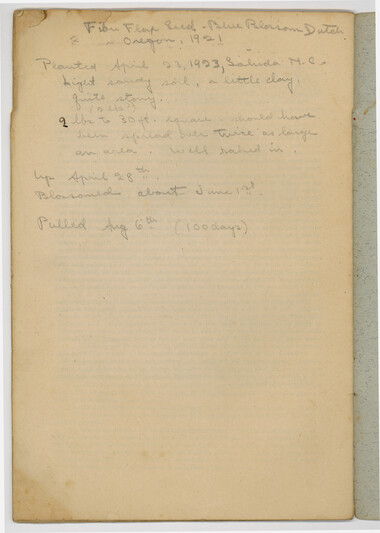 Fibre Flax Seed - Blue Blossom Dutch
Oregon, 1921
Planted April 23, 1923, Saluda N.C.
Light sandy soil, a little clay.
quite stony.
2 lbs to 30 ft. square. should have
been spread over twice as large
an area. Well raked in.
Up April 28th.
Blossomed about June 13th.
Pulled Aug 6th (100 days)